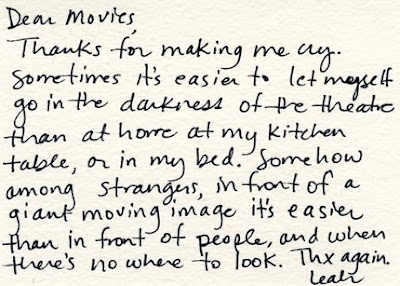 Dear Movies,
Thanks for making me cry.
Sometimes it's easier to let myself
go in the darkness of the theatre
than at home at my kitchen
table, or in my bed. Somehow
among strangers, in front of a
giant moving image it's easier
than in front of people, and when
there's no where to look. Thx again.
Leah